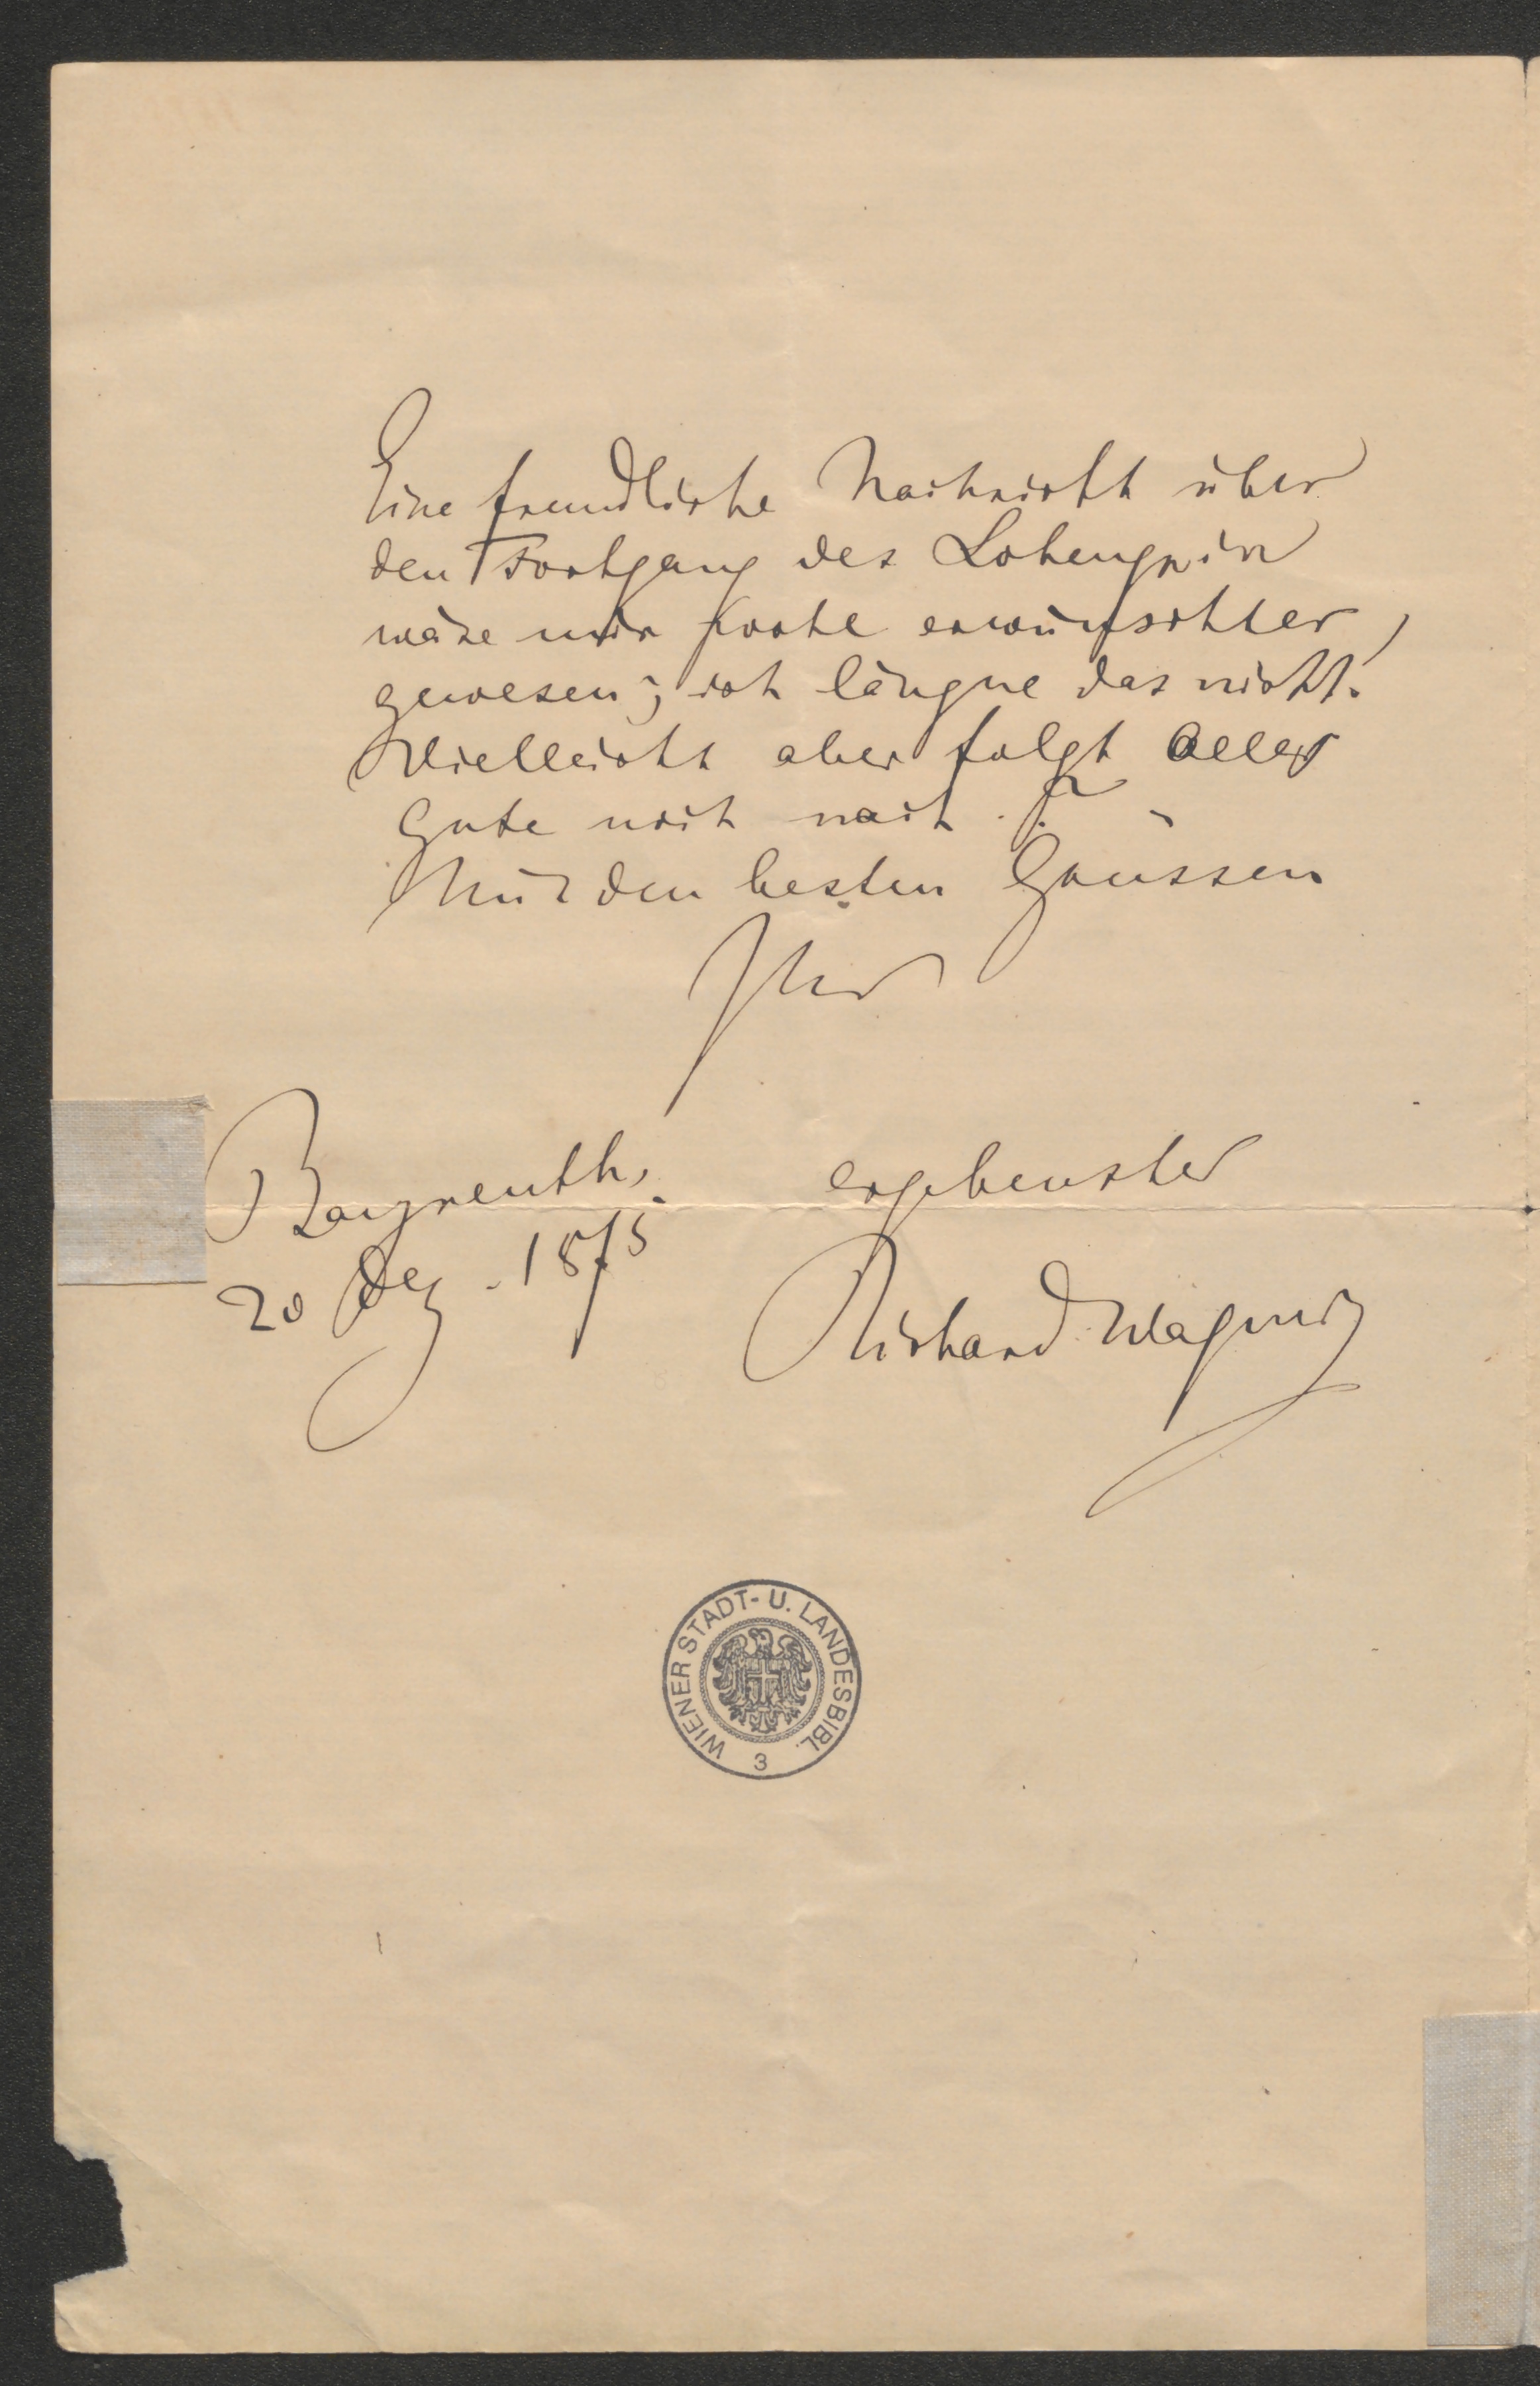 Eine freundliche Nachricht über
den Fortgang des Lohengrin
wäre mir heute erwünschter
gewesen; ich läugne das nicht.
Vielleicht aber folgt alles
Gute noch nach. –
Mit den besten Grüssen
Ihr
ergebenster
Bayreuth,
20 Dez. 1875.
Richard Wagner
WIENER STADT- U. LANDESBIBL.
3